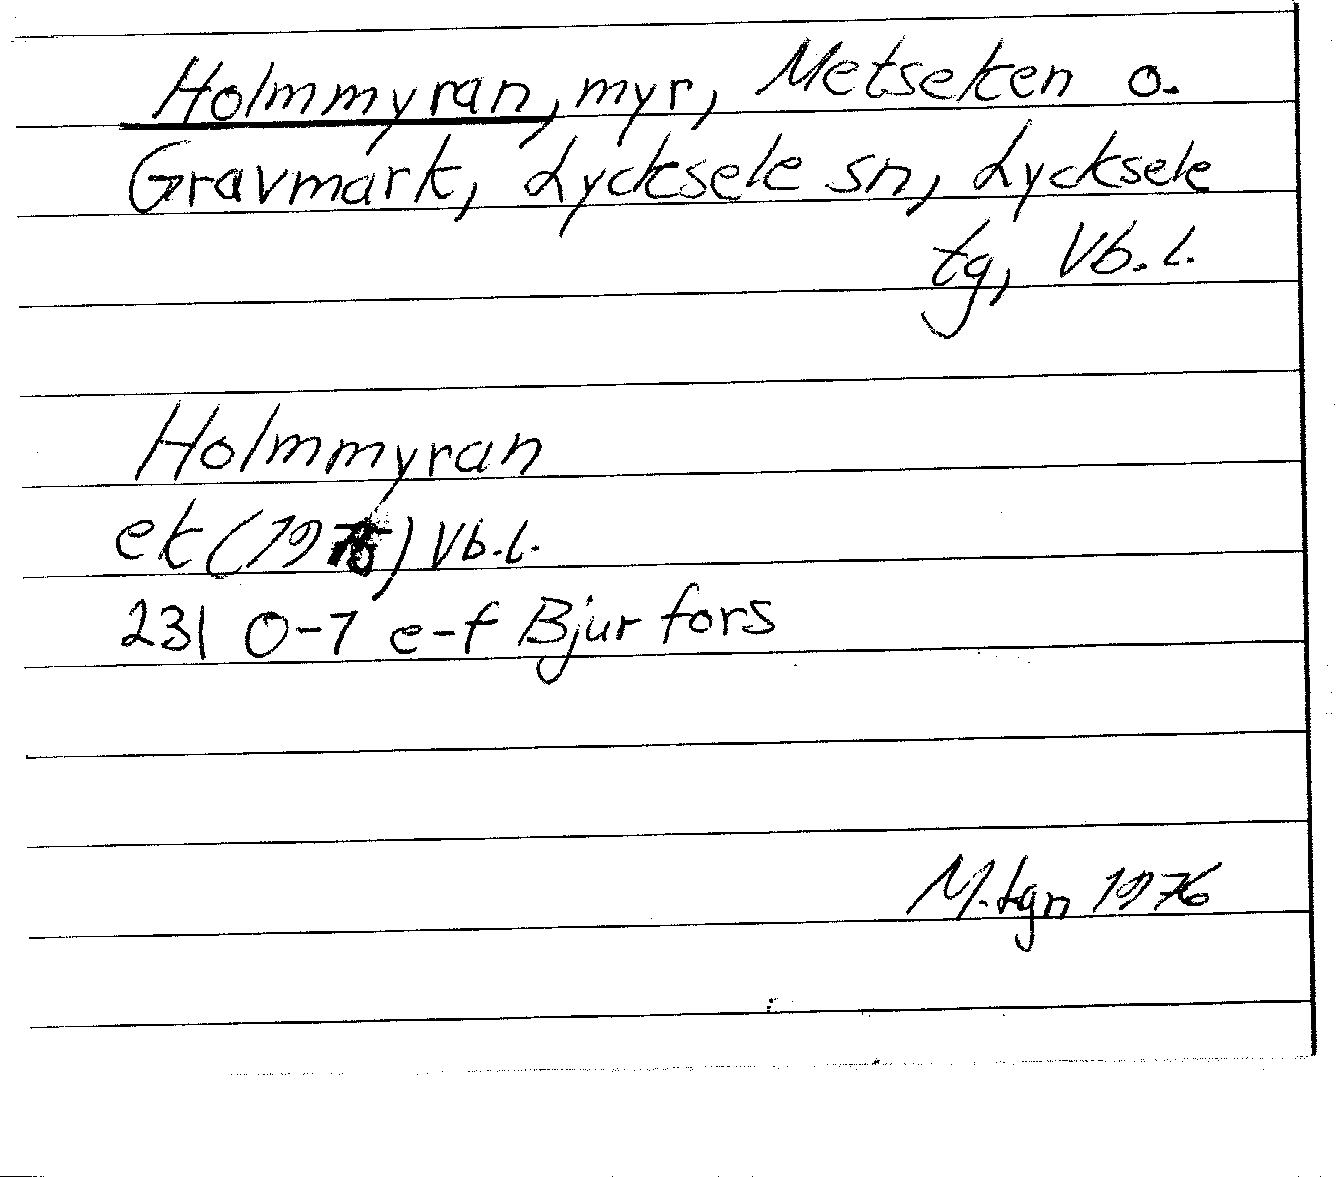 Holmmyran, myr, Metseken o.
Gravmark, Lycksele sn, Lycksele
tg, Vb.l.
Holmmyran
ek Vb.l.
231 0-7 e-f Bjurfors
M.tgn 1976